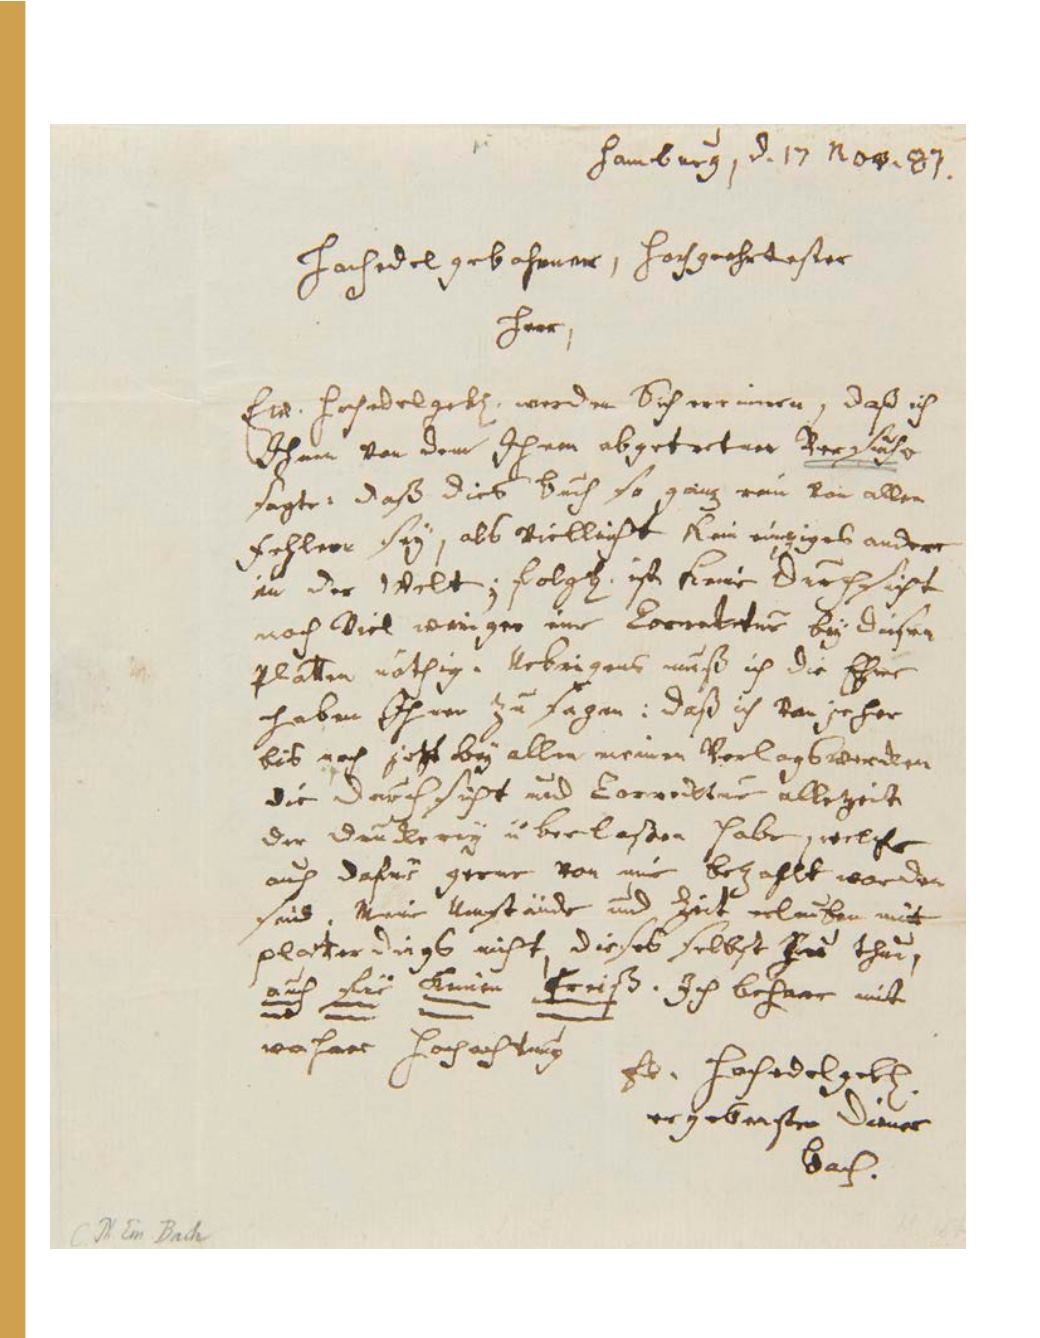 Hamburg, d. 17 Nov. 87.
Hochedelgebohrner, Hochgeehrtester
Herr,
Ew. Hochedelgeb. werden Sich erinnern, daß ich
Ihnen von dem Ihnen abgetretnen Versuche
sagte: daß dies Buch so ganz rein von allen
Fehlern sey, als vielleicht kein einziges andere
in der Welt; folgl. ist keine Durchsicht
noch viel weniger eine Correktur bey diesen
Platten nöthig. Uebrigens muß ich die Ehre
haben Ihnen zu sagen: daß ich von jeher
bis noch jetzt bey allen meinen Verlagswerken
die Durchsicht und Correcktur allezeit
der Druckerey überlaßen habe, welche
auch dafür gerne von mir bezahlt worden
sind. Meine Umstände und Zeit erlauben mir
platterdings nicht, dieses selbst zu thun,
auch für keinen Preiß. Ich beharre mit
wahrer Hochachtung
Ew. Hochedelgeb.
ergebenster Diener
Bach.
C. Ph Em Bach